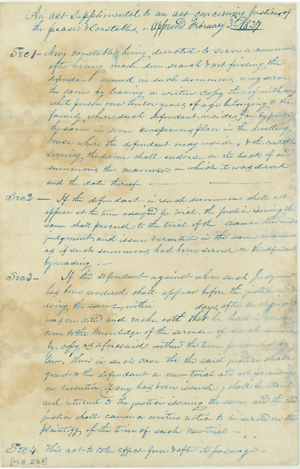 An act Supplimental to an act concerning Justices of
the peace & Constables, Approved February 3rd 1837
Sec 1 - Any constable being directed to serve a summons
after having made due search & not finding the
defendant named in such summons may serve
the same by leaving a written copy thereof with any
white person over twelve years of age belonging to the
family where such defendant resides, or by posting
the same in some conspicuous place in the dwelling
house where the defendant may reside, & the constable
serving the same shall endorse on the back of said
summons the manner in which it was served
and the date thereof
Sec 2 - If the defendant in such summons shall not
appear at the time assigned for trial the justice issuing the
same shall proceed to the trial of the cause
judgment and issue execution in the same manner
as if such summons had been served on the defendant
by reading
Sec 3 - If the defendant against whom such judgment
has been rendered shall appear before the justice
the same within days after
was rendered and make oath that he had
come to the knowledge of the service of such summons
by copy as aforesaid within the time
law, then in such case the the said justice shall
grant to the defendant a new trial and all proceedings
on execution if any has been issued shall be stayed
and returned to the justice issuing the same and the said
justice shall cause a written notice to be served on the
plaintiff of the time of such new trial -
Sec 4 This act to take effect from & after its passage -
[HB 228]